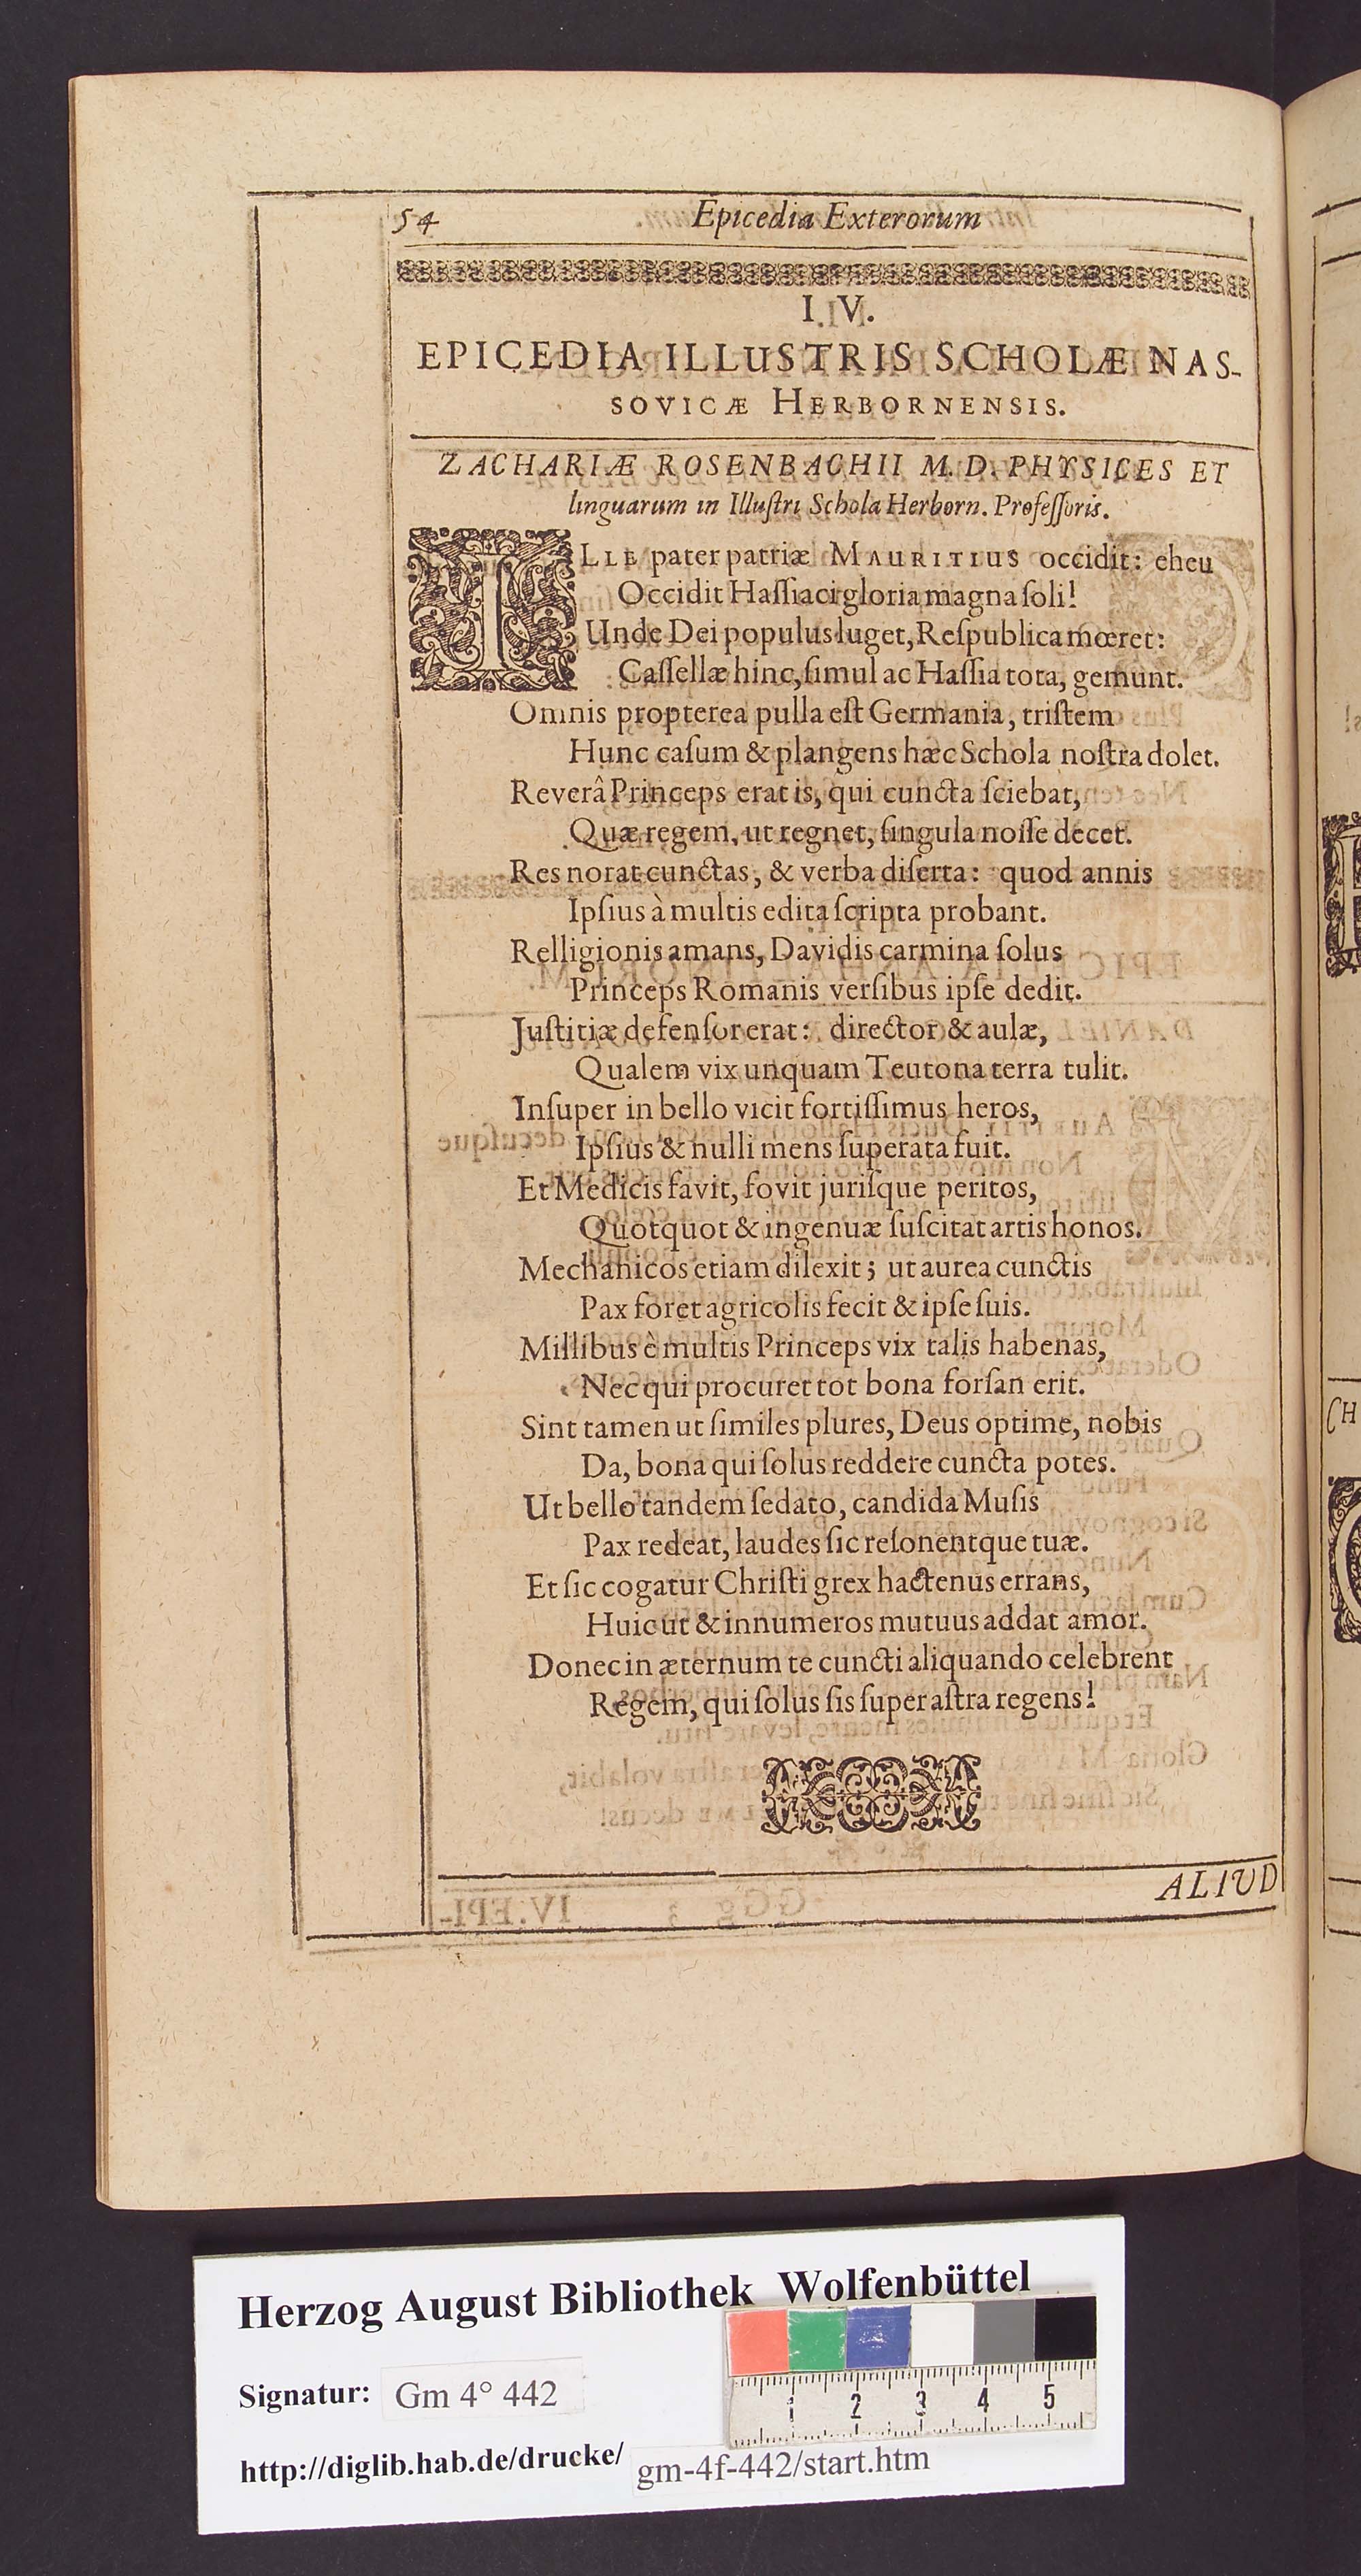 54 Epicedia Exterorum
I.V.
EPICEDIA ILLUSTRIS SCHOLÆ NAS-
SOVICÆ HERBORNENSIS.
ZACHARIÆ ROSENBACHII M. D. PHYSICES ET
linguarum in Illuſtri Schola Herborn. Profeſſoris.
ILLE pater patriæ MAURITIUS occidit: eheu
Occidit Haſſiaci gloria magna ſoli!
Unde Dei populus luget, Reſpublica mœret:
Caſſellæ hinc, ſimul ac Haſſia tota, gemunt.
Omnis propterea pulla eſt Germania, triſtem
Hunc caſum & plangens hæc Schola noſtra dolet.
Reverâ Princeps erat is, qui cuncta ſciebat,
Quæ regem, ut regnet, ſingula noſſe decet.
Res norat cunctas, & verba diſerta: quod annis
Ipſius à multis edita ſcripta probant.
Relligionis amans, Davidis carmina ſolus
Princeps Romanis verſibus ipſe dedit.
Juſtitiæ defenſor erat: director & aulæ,
Qualem vix unquam Teutona terra tulit.
Inſuper in bello vicit fortiſſimus heros,
Ipſius & nulli mens ſuperata fuit.
Et Medicis favit, fovit juriſque peritos,
Quotquot & ingenuæ ſuſcitat artis honos.
Mechanicos etiam dilexit; ut aurea cunctis
Pax foret agricolis fecit & ipſe ſuis.
Millibus è multis Princeps vix talis habenas,
Nec qui procuret tot bona forſan erit.
Sint tamen ut ſimiles plures, Deus optime, nobis
Da, bona qui ſolus reddere cuncta potes.
Ut bello tandem ſedato, candida Muſis
Pax redeat, laudes ſic reſonentque tuæ.
Et ſic cogatur Chriſti grex hactenus errans,
Huic ut & innumeros mutuus addat amor.
Donec in æternum te cuncti aliquando celebrent
Regem, qui ſolus ſis ſuper aſtra regens!
ALIUD
Herzog August Bibliothek Wolfenbüttel
Signatur: Gm 4° 442
1 2 3 4 5
http://diglib.hab.de/drucke/ gm-4f-442/start.htm